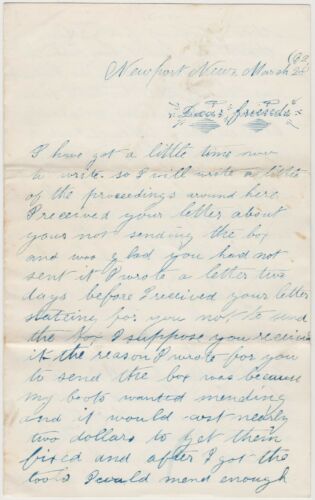 Newport News March 28 /62
Dear friends
I have got a little time now
to write so I will write a little
of the proceedings around here
I received your letter about
your not sending the box
and was glad you had not
sent it I wrote a letter two
days before I received your letter
stateing for you not to send
the box I suppose you received
it the reason I wrote for you
to send the box was because
my boots wanted mending
and it would cost nearly
two dollars to get them
fixed and after I got the
tools I could mend enough